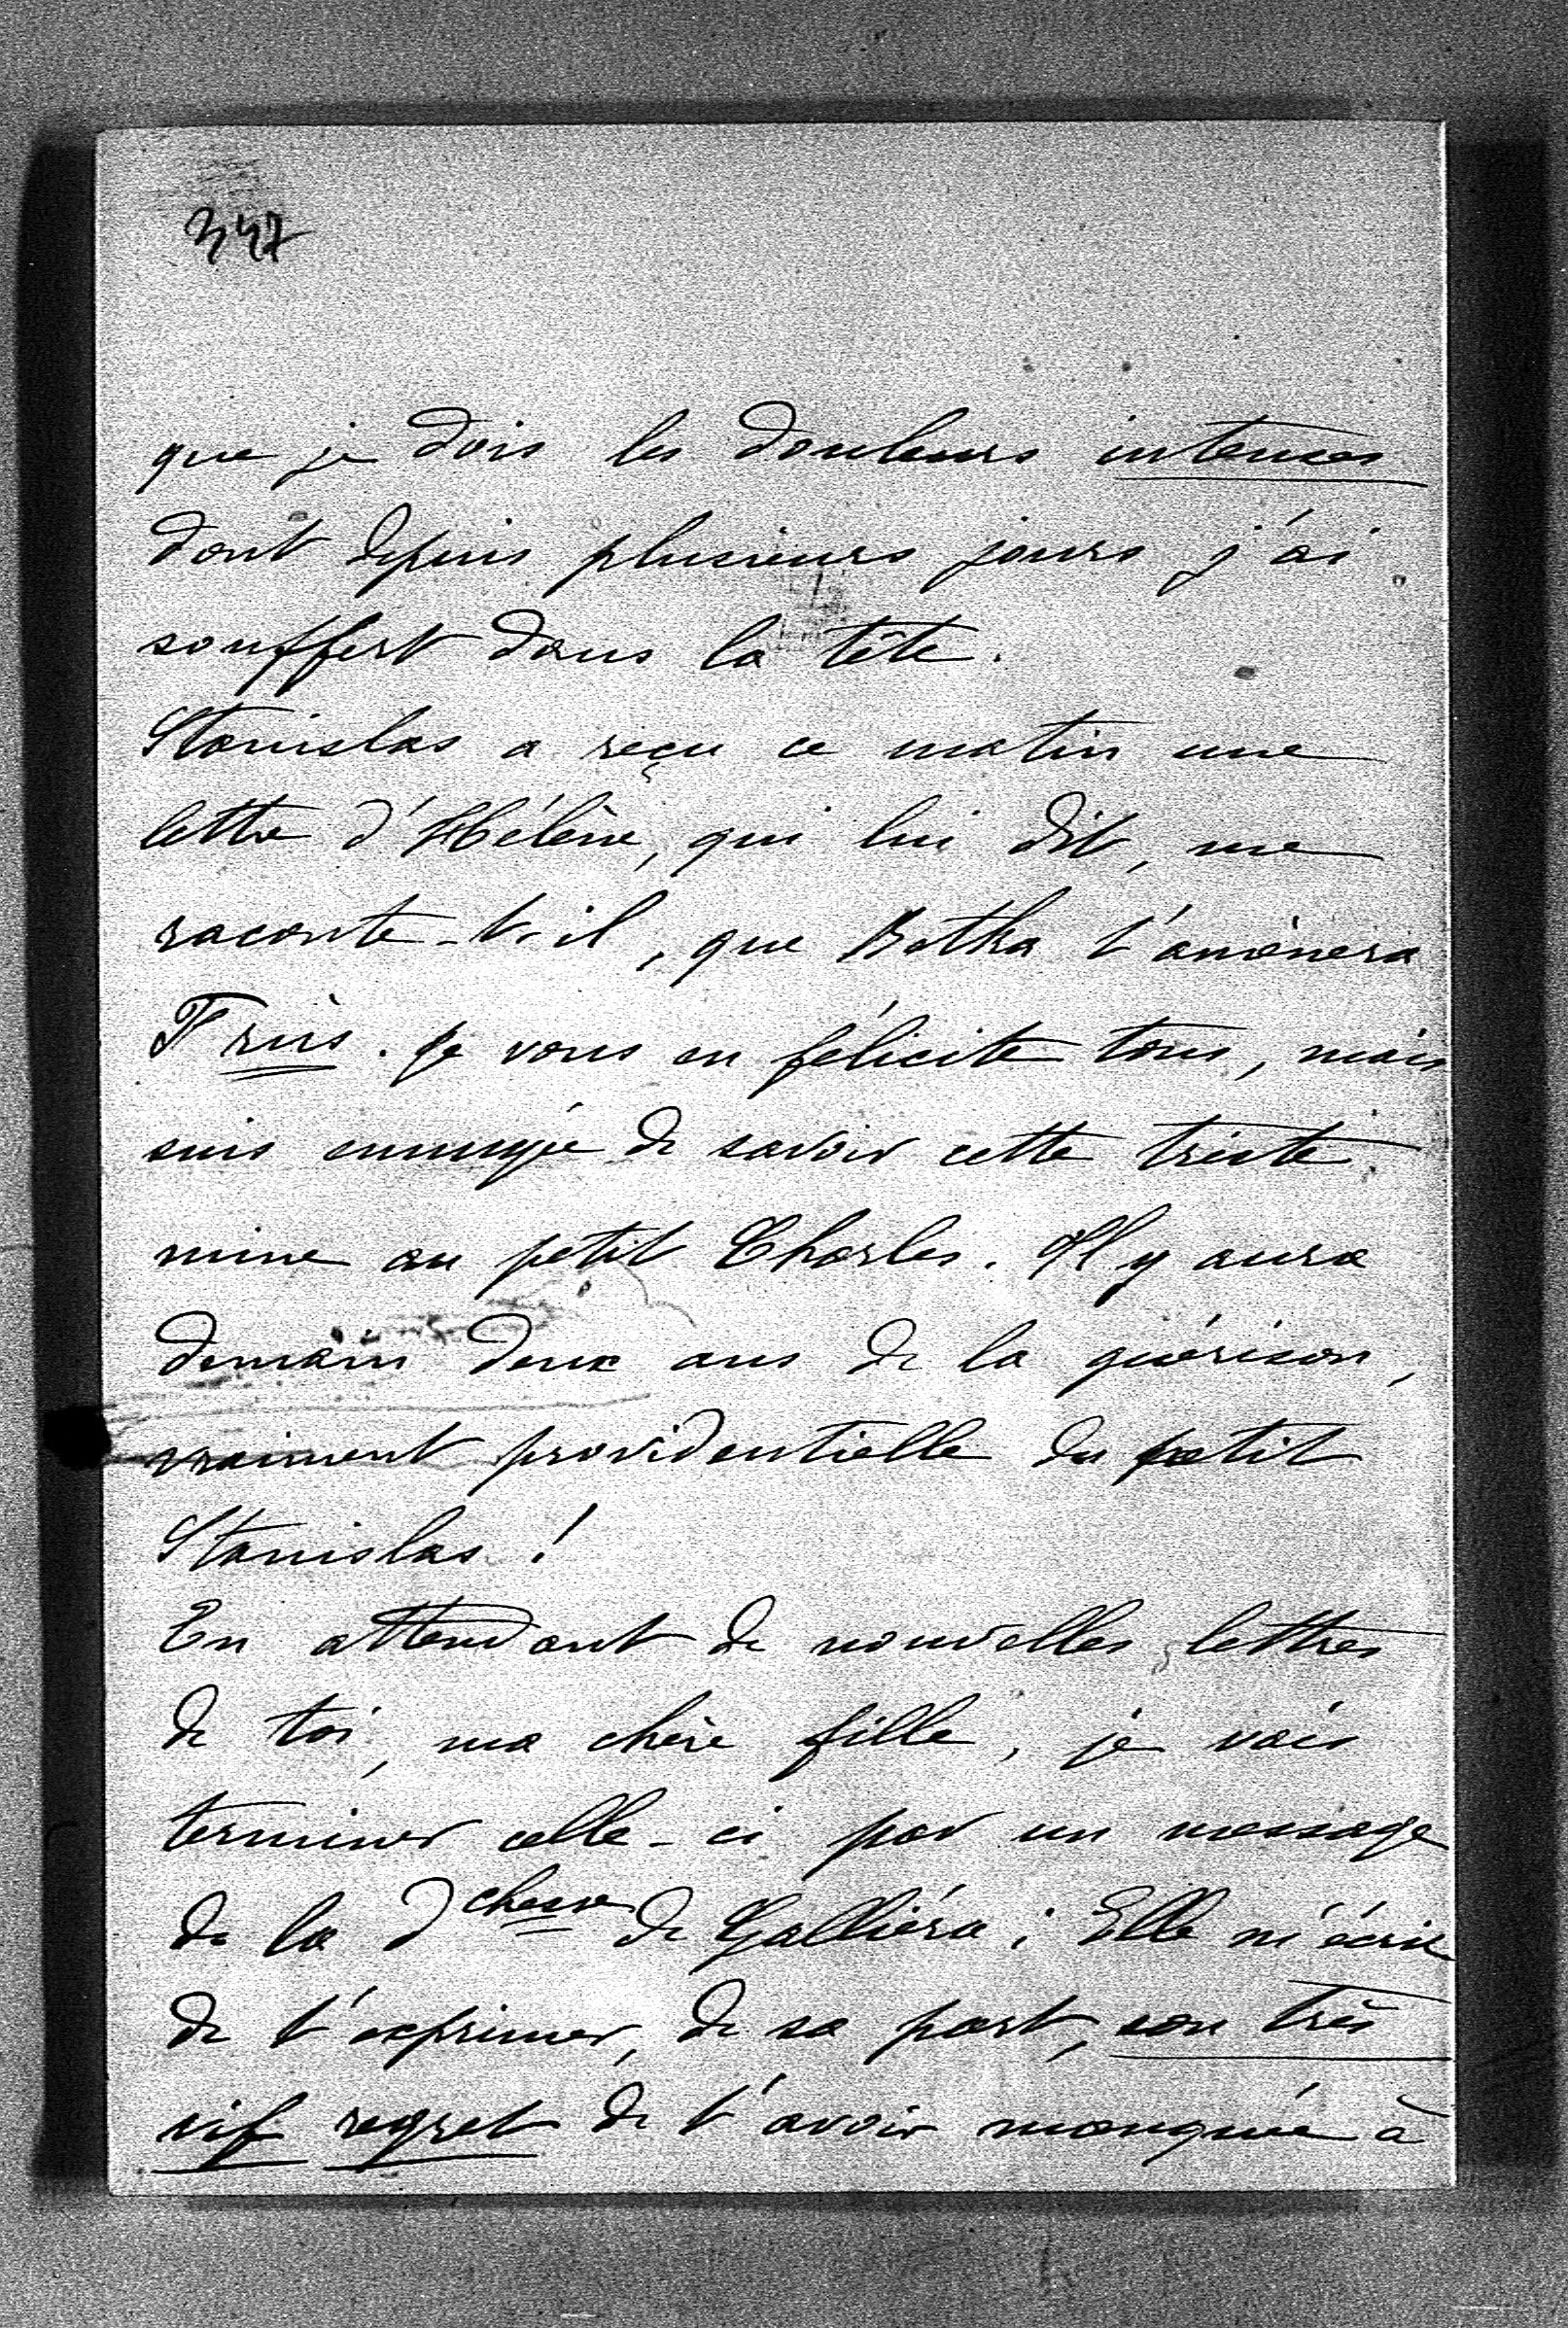 347
que je dois les douleurs intenses
dont depuis plusieurs jours j'ai
souffert dans la tête.
Stanislas a reçu ce matin une
lettre d'Hélène, qui lui dit, me
raconte-t-il, que Betka t'amènera
Je vous en félicite tous, mais
suis ennuyée de savoir cette triste
mine au petit Charles. Il y aura
demain deux ans de la guérison,
vraiment providentielle du petit
Stanislas !
En attendant de nouvelles lettres
de toi, ma chère fille, je vais
terminer celle-ci par un message
de la dchesse de Galliéra ; Elle m'écrit
de t'exprimer, de sa part, son très
vif regret de t'avoir manquée à